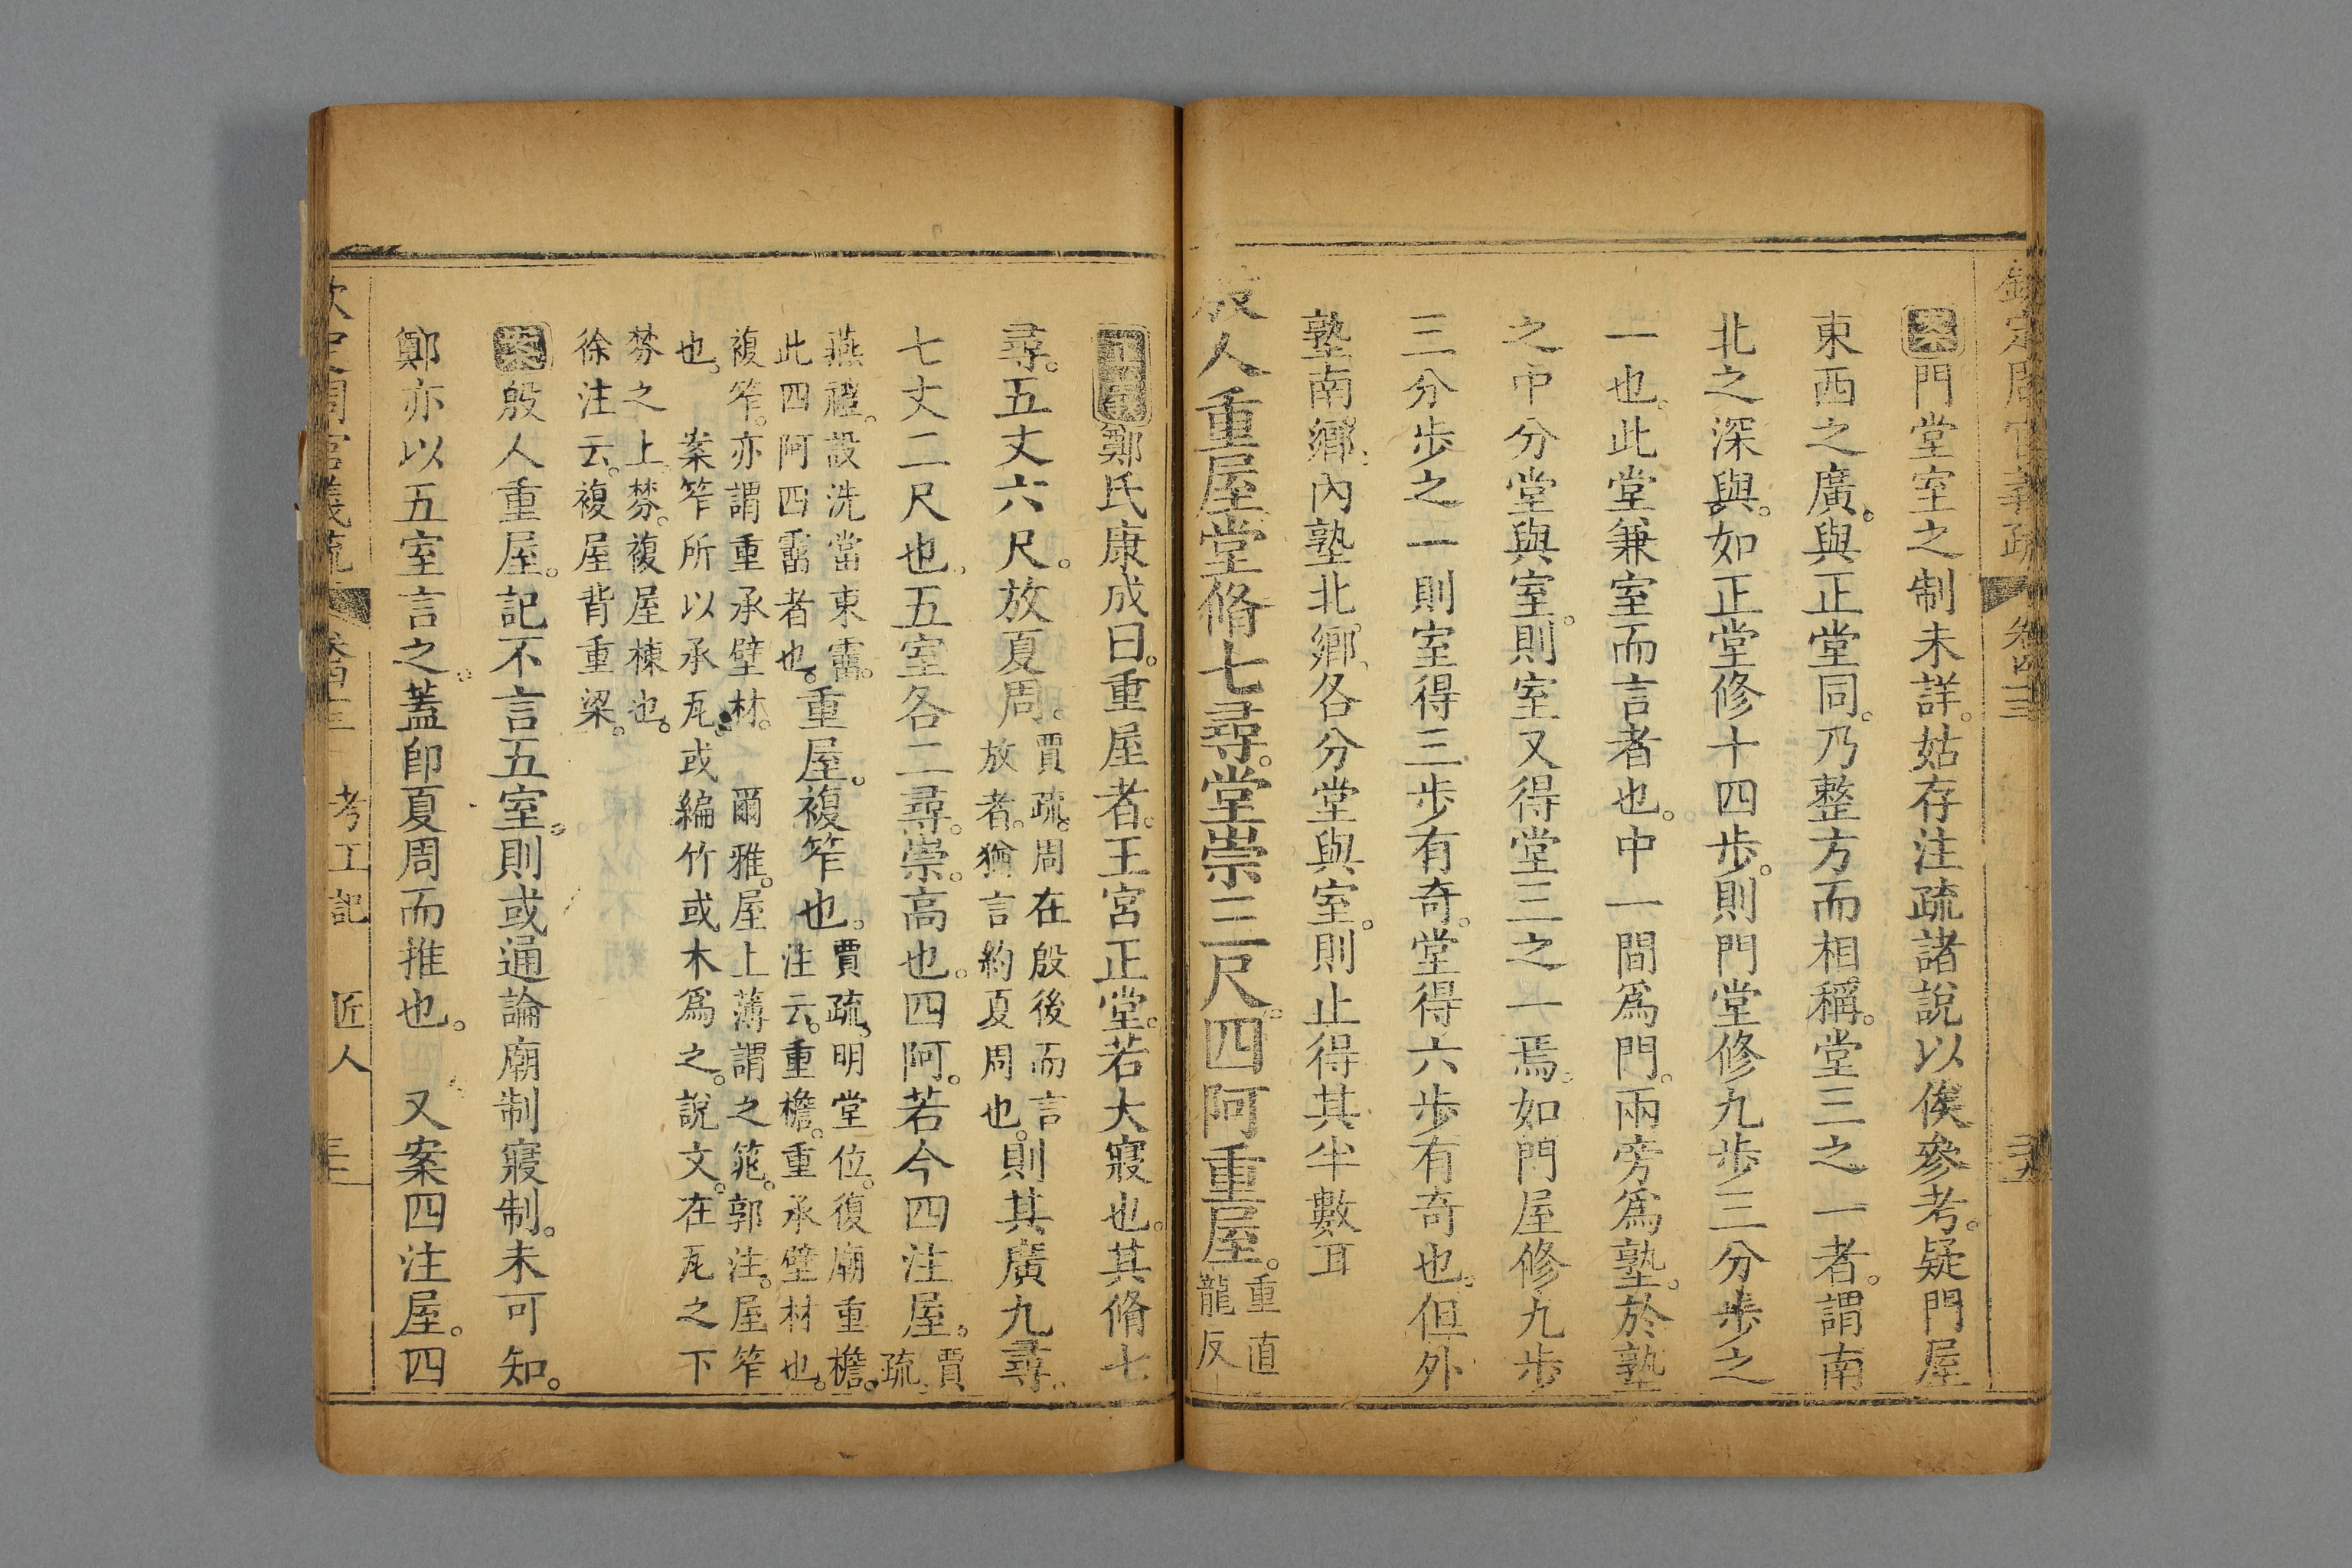 欽定周官義疏 卷四十三
案門堂室之制未詳。姑存注疏諸說以俟參考。疑門屋
東西之廣。與正堂同。乃整方而相稱。堂三之一者。謂南
北之深與。如正堂修十四步。則門堂修九步三分步之
一也。此堂兼室而言者也。中一間為門。兩旁為塾。於塾
之中分堂與室。則室又得堂三之一焉。如門屋修九步
三分步之一則室得三步有奇。堂得六步有奇也。但外
塾南鄉。內塾北鄉。各分堂與室。則止得其半數耳
殷人重屋堂脩七尋。堂崇三尺。四阿重屋。重直
龍反
正義鄭氏康成曰。重屋者。王宮正堂。若大寢也。其脩七
尋。五丈六尺。放夏周。賈疏。周在殷後而言
放者。猶言約夏周也。則其廣九尋。
七丈二尺也。五室各二尋。崇。高也。四阿。若今四注屋。賈
疏。
燕禮。設洗當東霤。
此四阿四霤者也。重屋。複笮也。賈疏。明堂位。復廟重檐。
注云。重檐。重承壁材也。
複笮。亦謂重承壁材。 爾雅。屋上薄謂之筄。郭注。屋笮
也。 案笮所以承瓦。或編竹或木為之。說文。在瓦之下
棼之上。棼。複屋棟也。
徐注云。複屋背重梁。
案殷人重屋。記不言五室。則或通論廟制寢制。未可知。
鄭亦以五室言之。蓋卽夏周而推也。 又案四注屋。四
欽定周官義疏 卷四十三 考工記 匠人